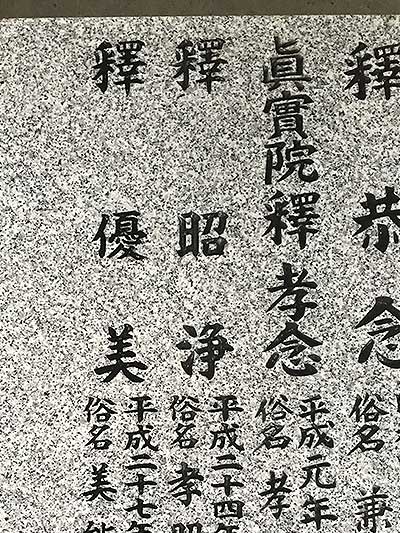 釋恭念
俗名 兼
眞實院釋孝念
平成元年
俗名 孝
釋昭浄
平成二十四年
俗名 孝昭
釋優美
平成二十七年
俗名 美